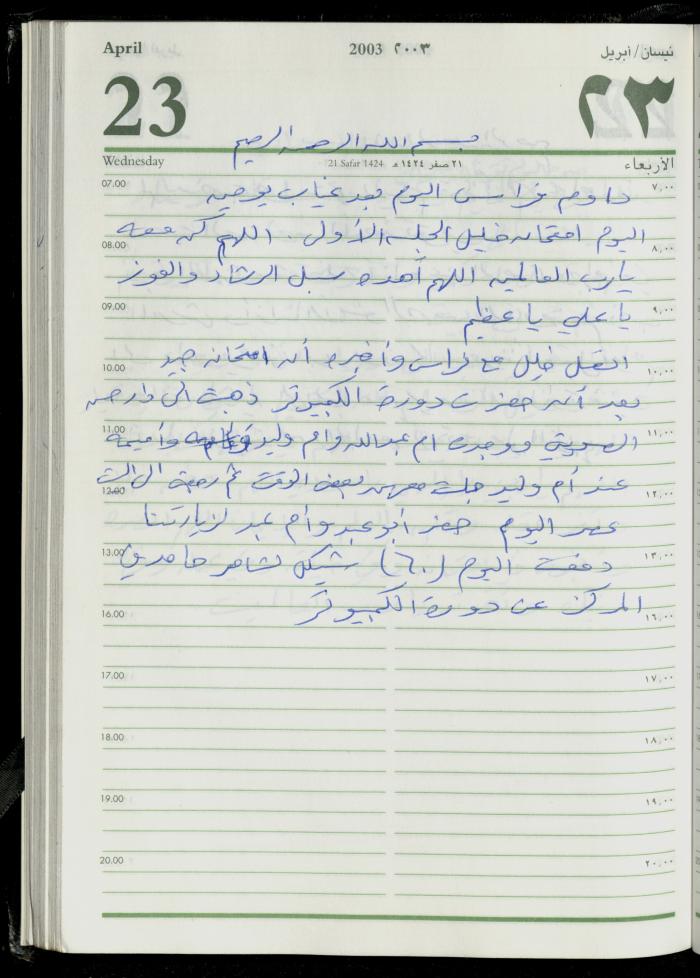 April 2003 ٢٠٠٣ نيسان/أبريل
23 ٢٣
بسم الله الرحمن الرحيم
Wednesday 21 Safar 1424 ٢١ صفر ١٤٢٤ هـ الأربعاء
07.00 داوم فراس اليوم بعد غياب يومين ٧,٠٠
اليوم امتحان خليل الجلسة الأولى. اللهم كن معه
08.00 يارب العالمين اللهم أهده سبل الرشاد والفوز ٨,٠٠
09.00 يا علي يا عظيم ٩,٠٠
10.00 اتصل خليل مع فراس وأخبره أن امتحانه جيد ١٠,٠٠
بعد أن حضرت دورة الكمبيوتر ذهبت الى دار حسن
11.00 ووجدت ام عبدالله وام وليد وأميمة ١١,٠٠
12.00 عند أم وليد جلست معهن بعض الوقت ثم رجعت الى البيت ١٢,٠٠
عصر اليوم حضر أبو عبد وأم عبد لزيارتنا
13.00 دفعت اليوم (٦٠) شيكل لشاهر حامد في ١٣,٠٠
16.00 المركز عن دورة الكمبيوتر ١٦,٠٠
17.00 ١٧,٠٠
18.00 ١٨,٠٠
19.00 ١٩,٠٠
20.00 ٢٠,٠٠